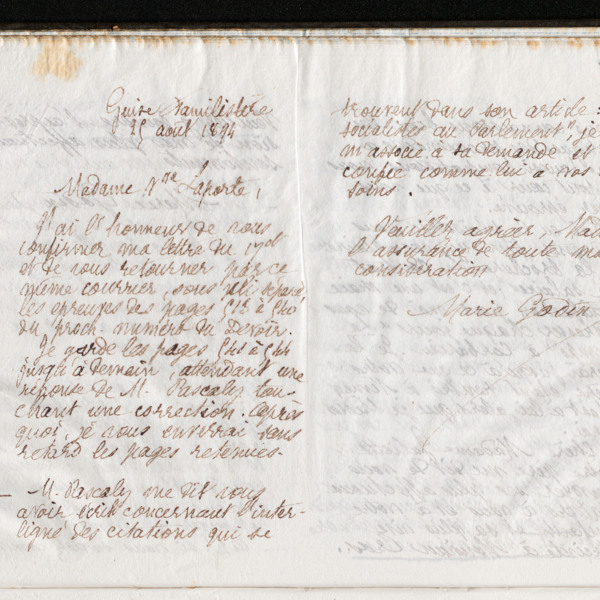 Guise Familistère
25 août 1894
Madame Vve Laporte,
J'ai l'honneur de vous
confirmer ma lettre du 17 ct
et de vous retourner par ce
même courrier, sous pli séparé,
les épreuves des pages 513 à 540
du proch. numéro du Devoir.
Je garde les pages 541 à 544
jusqu'à demain, attendant une
réponse de M. Pascaly tou-
chant une correction. Après
quoi, je vous enverrai sans
retard les pages retenues.
— M. Pascaly me dit vous
avoir écrit concernant l'inter-
ligne des citations qui se
trouvent dans son article :
socialistes au Parlement", je
m'associe à sa demande et
confie comme lui à vos
soins.
Veuillez agréer, Mada
l'assurance de toute ma
considération
Marie Godin